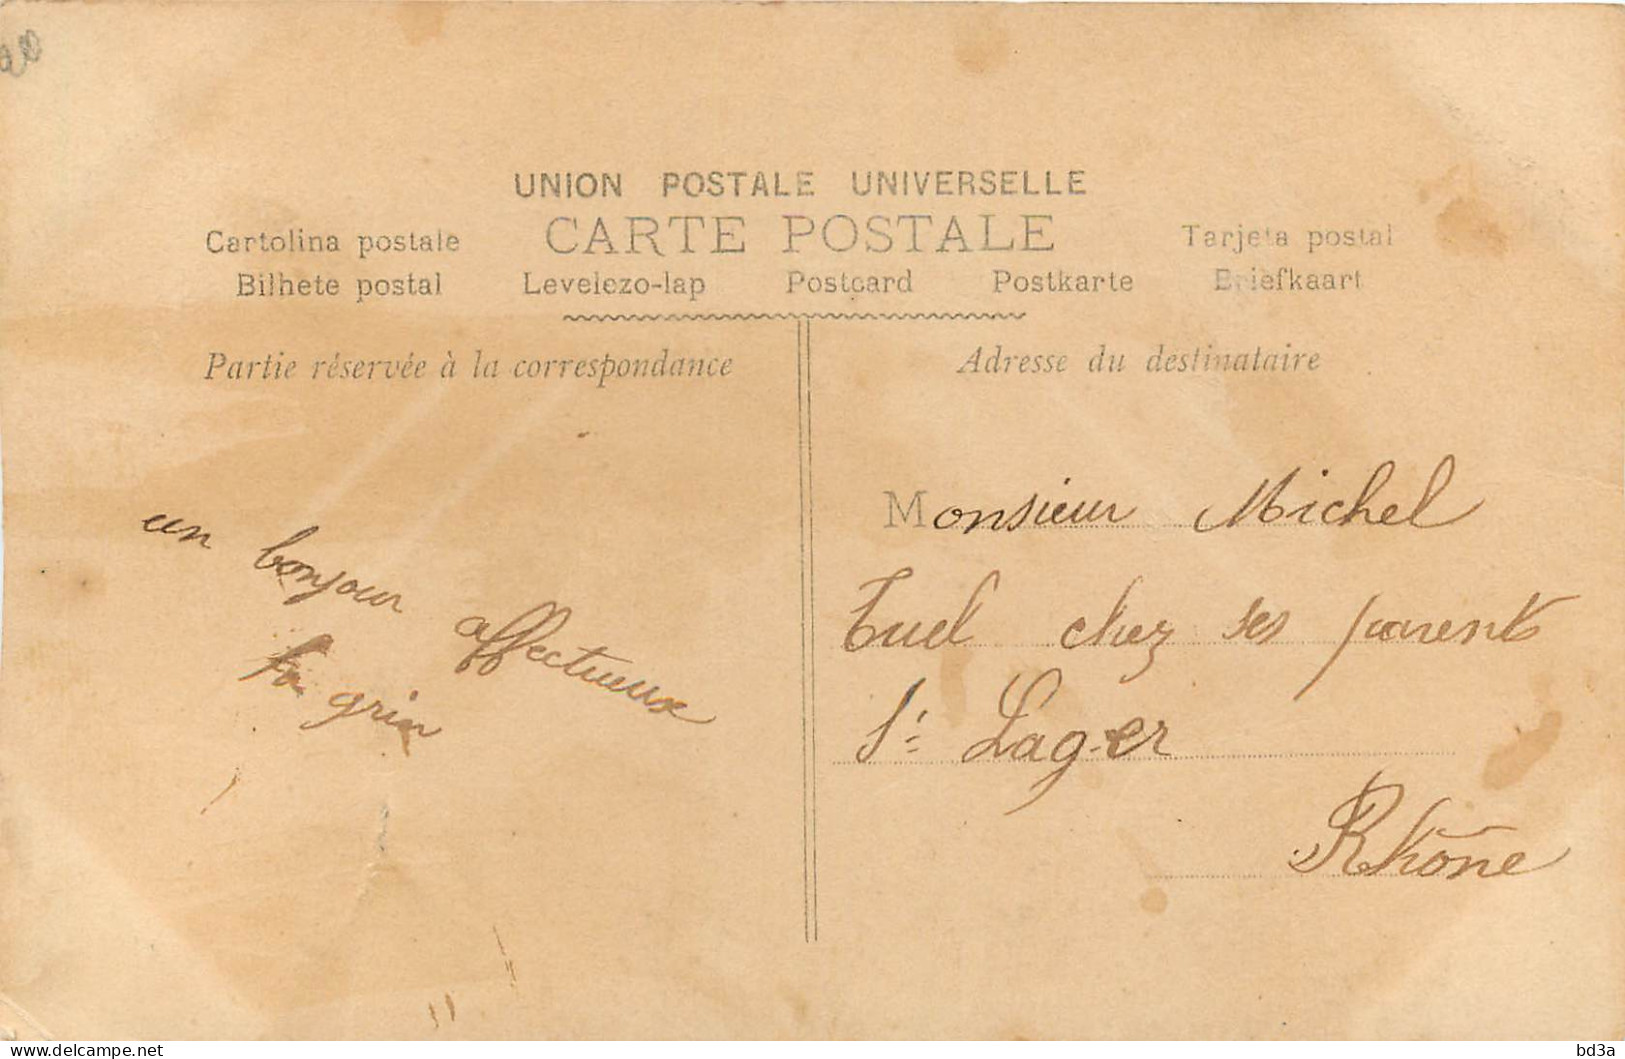 UNION POSTALE UNIVERSELLE
CARTE POSTALE
Cartolina postale
Tarjeta postal
Bilhete postal Levelezo-lap Postcard Postkarte Briefkaart
Partie réservée à la correspondance
un bonjour affectueux
grin
Adresse du destinataire
Monsieur Michel
Tuel chez ses parents
St Lager
Rhône
www.delcampe.net
bd3a